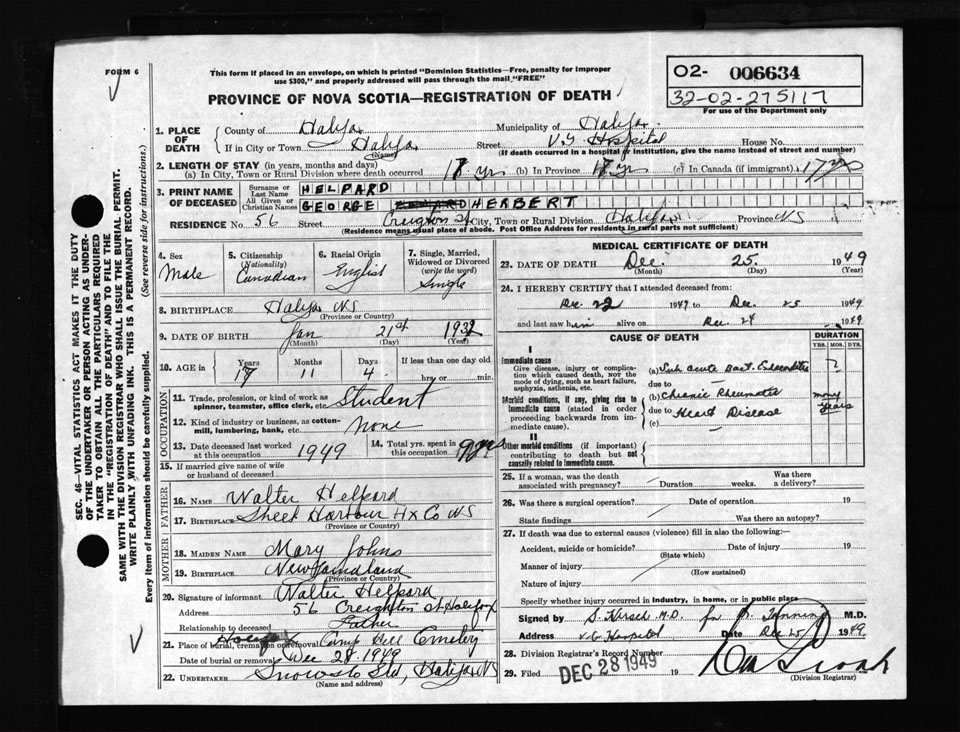 FORM 6
This form if placed in an envelope, on which is printed "Dominion Statistics—Free, penalty for improper
use $300," and properly addressed will pass through the mail "FREE"
PROVINCE OF NOVA SCOTIA—REGISTRATION OF DEATH
02- 006634
32-02-275117
For use of the Department only
SEC. 46—VITAL STATISTICS ACT MAKES IT THE DUTY
OF THE UNDERTAKER OR PERSON ACTING AS UNDER-
TAKER TO OBTAIN ALL THE PARTICULARS REQUIRED
IN THE "REGISTRATION OF DEATH" AND TO FILE THE
SAME WITH THE DIVISION REGISTRAR WHO SHALL ISSUE THE BURIAL PERMIT.
WRITE PLAINLY WITH UNFADING INK. THIS IS A PERMANENT RECORD.
Every item of information should be carefully supplied. (See reverse side for instructions.)
1. PLACE OF DEATH
County of Halifax Municipality of Halifax
If in City or Town Halifax Street V.G. Hospital House No.
(Name) (If death occurred in a hospital or institution, give the name instead of street and number)
2. LENGTH OF STAY (in years, months and days)
(a) In City, Town or Rural Division where death occurred 17 yrs (b) In Province 17 yrs (c) In Canada (if immigrant) 17 yrs
3. PRINT NAME OF DECEASED
Surname or Last Name HELPARD
All Given or Christian Names GEORGE HERBERT
RESIDENCE No. 56 Street Creighton St City, Town or Rural Division Halifax Province NS
(Residence means usual place of abode. Post Office Address for residents in rural parts not sufficient)
4. Sex Male
5. Citizenship (Nationality) Canadian
6. Racial Origin English
7. Single, Married, Widowed or Divorced (write the word) Single
8. BIRTHPLACE Halifax NS
(Province or Country)
9. DATE OF BIRTH Jan 21st 1932
(Month) (Day) (Year)
10. AGE in Years 17 Months 11 Days 4 If less than one day old
hrs. or min.
OCCUPATION
11. Trade, profession, or kind of work as spinner, teamster, office clerk, etc. Student
12. Kind of industry or business, as cotton-mill, lumbering, bank, etc. none
13. Date deceased last worked at this occupation 1949
14. Total yrs. spent in this occupation 9 yrs
15. If married give name of wife or husband of deceased
FATHER
16. NAME Walter Helpard
17. BIRTHPLACE Sheet Harbour Hx Co NS
(Province or Country)
MOTHER
18. MAIDEN NAME Mary Johns
19. BIRTHPLACE Newfoundland
(Province or Country)
20. Signature of informant Walter Helpard
Address 56 Creighton St Halifax
Relationship to deceased Father
21. Place of burial, cremation or removal Halifax Camp Hill Cemetery
Date of burial or removal Dec 28 1949
22. UNDERTAKER Snows Ltd, Halifax NS
(Name and address)
MEDICAL CERTIFICATE OF DEATH
23. DATE OF DEATH Dec. 25. 1949
(Month) (Day) (Year)
24. I HEREBY CERTIFY that I attended deceased from:
Dec 22 1949 to Dec. 25 1949
and last saw him alive on Dec 24 1949
CAUSE OF DEATH DURATION
YRS. MOS. DYS.
I
Immediate cause
Give disease, injury or complication which caused death, not the mode of dying, such as heart failure, asphyxia, asthenia, etc.
(a) Sub Acute Bact. Endocarditis ?
due to
Morbid conditions, if any, giving rise to immediate cause (stated in order proceeding backwards from immediate cause).
(b) Chronic Rheumatic many years
due to Heart Disease
(c) —
II
Other morbid conditions (if important) contributing to death but not causally related to immediate cause.
25. If a woman, was the death associated with pregnancy? Duration weeks. Was there a delivery?
26. Was there a surgical operation? Date of operation 19
State findings Was there an autopsy?
27. If death was due to external causes (violence) fill in also the following:
Accident, suicide or homicide? Date of injury 19
(State which)
Manner of injury
(How sustained)
Nature of injury
Specify whether injury occurred in industry, in home, or in public place
Signed by S. Hirsch M.D. for Dr. M.D.
Address V.G. Hospital Date Dec 25 1949
28. Division Registrar's Record Number
29. Filed DEC 28 1949 19
(Division Registrar)